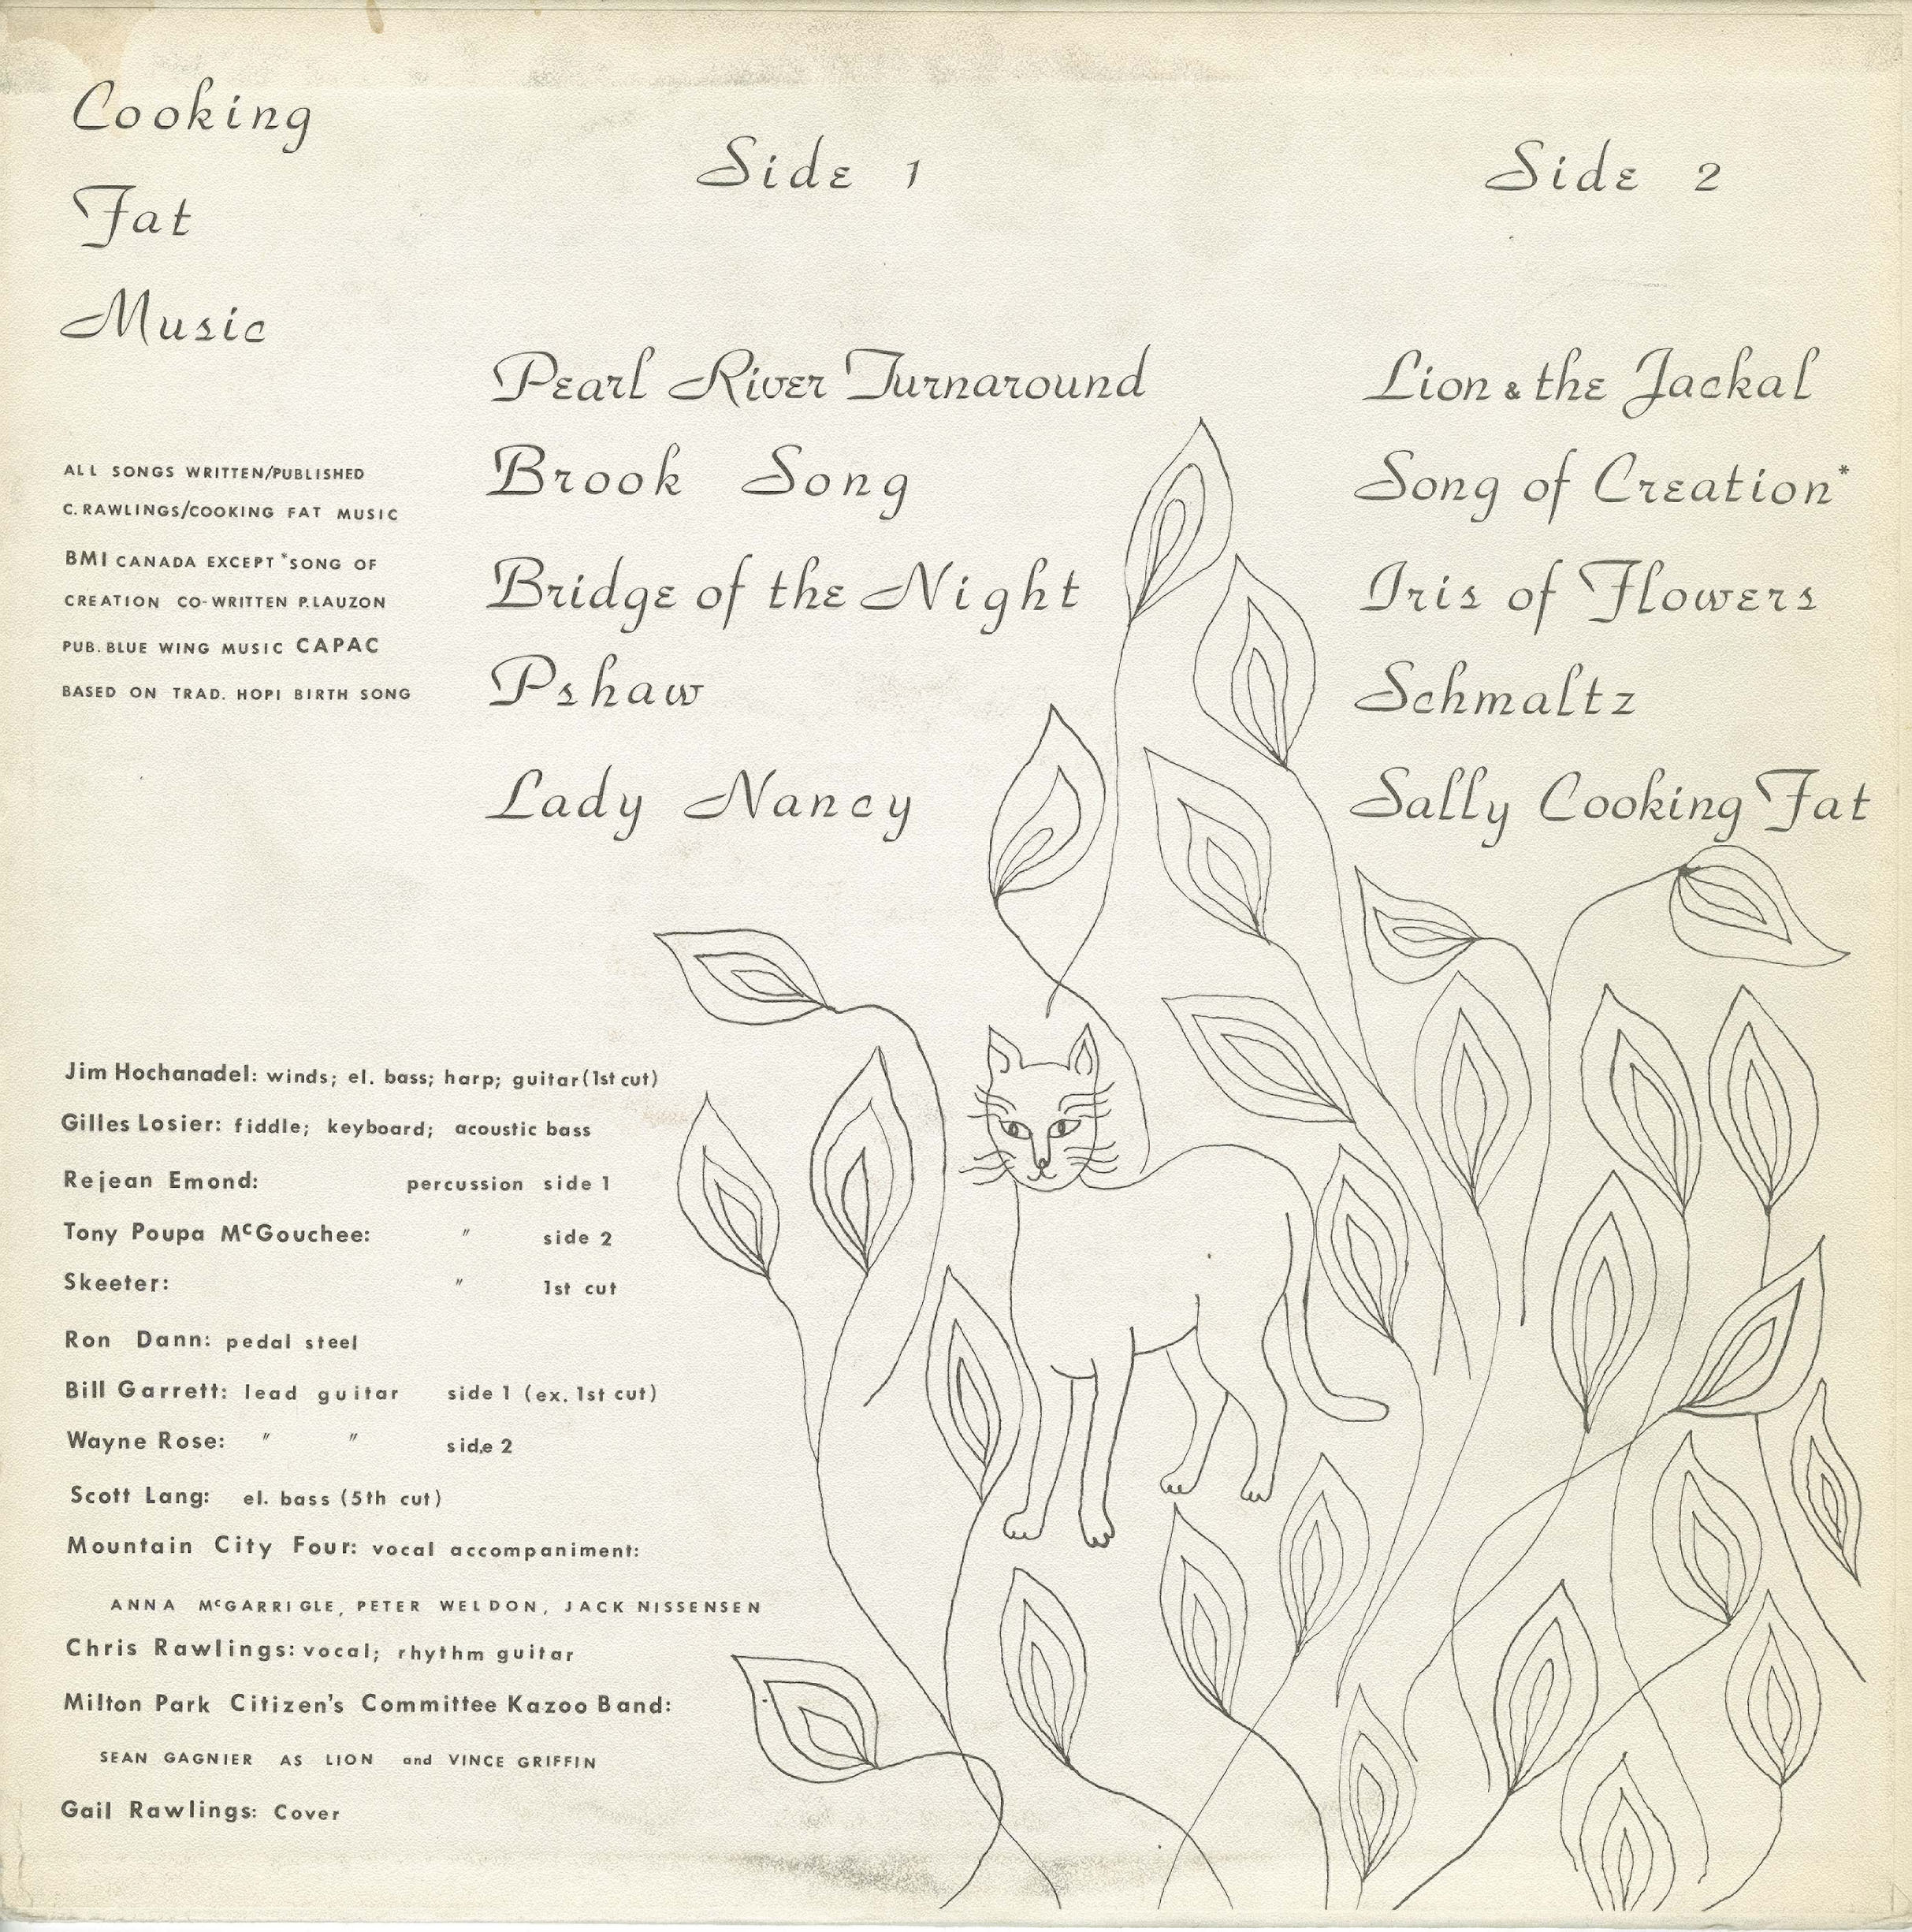 Cooking
Fat
Music
Side 1
Side 2
Pearl River Turnaround
Brook Song
Bridge of the Night
Pshaw
Lady Nancy
Lion & the Jackal
Song of Creation*
Iris of Flowers
Schmaltz
Sally Cooking Fat
ALL SONGS WRITTEN/PUBLISHED
C. RAWLINGS/COOKING FAT MUSIC
BMI CANADA EXCEPT *SONG OF
CREATION CO-WRITTEN P.LAUZON
PUB. BLUE WING MUSIC CAPAC
BASED ON TRAD. HOPI BIRTH SONG
Jim Hochanadel: winds; el. bass; harp; guitar (1st cut)
Gilles Losier: fiddle; keyboard; acoustic bass
Rejean Emond: percussion side 1
Tony Poupa McGouchee: " side 2
Skeeter: " 1st cut
Ron Dann: pedal steel
Bill Garrett: lead guitar side 1 (ex. 1st cut)
Wayne Rose: " " side 2
Scott Lang: el. bass (5th cut)
Mountain City Four: vocal accompaniment:
ANNA McGARRIGLE, PETER WELDON, JACK NISSENSEN
Chris Rawlings: vocal; rhythm guitar
Milton Park Citizen's Committee Kazoo Band:
SEAN GAGNIER AS LION and VINCE GRIFFIN
Gail Rawlings: Cover